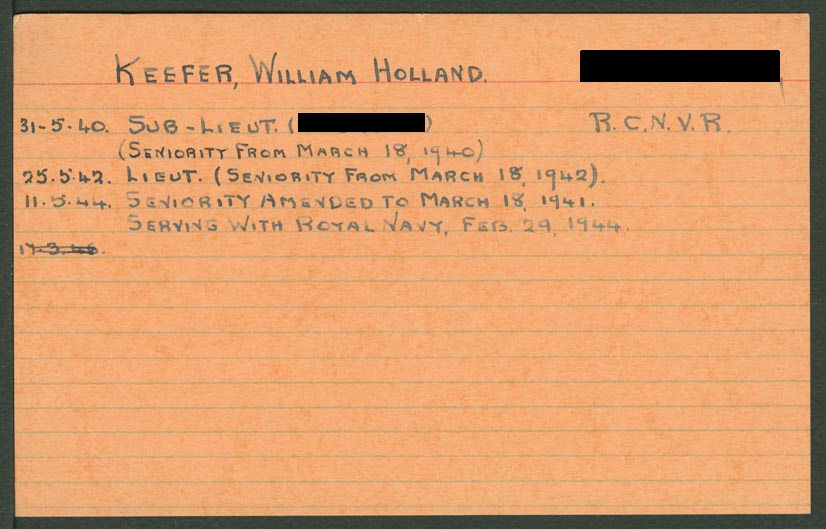 KEEFER, WILLIAM HOLLAND.
31-5-40. SUB-LIEUT. ( ) R.C.N.V.R.
(SENIORITY FROM MARCH 18, 1940)
25.5.42. LIEUT. (SENIORITY FROM MARCH 18, 1942).
11.5.44. SENIORITY AMENDED TO MARCH 18, 1941.
SERVING WITH ROYAL NAVY, FEB. 29, 1944.